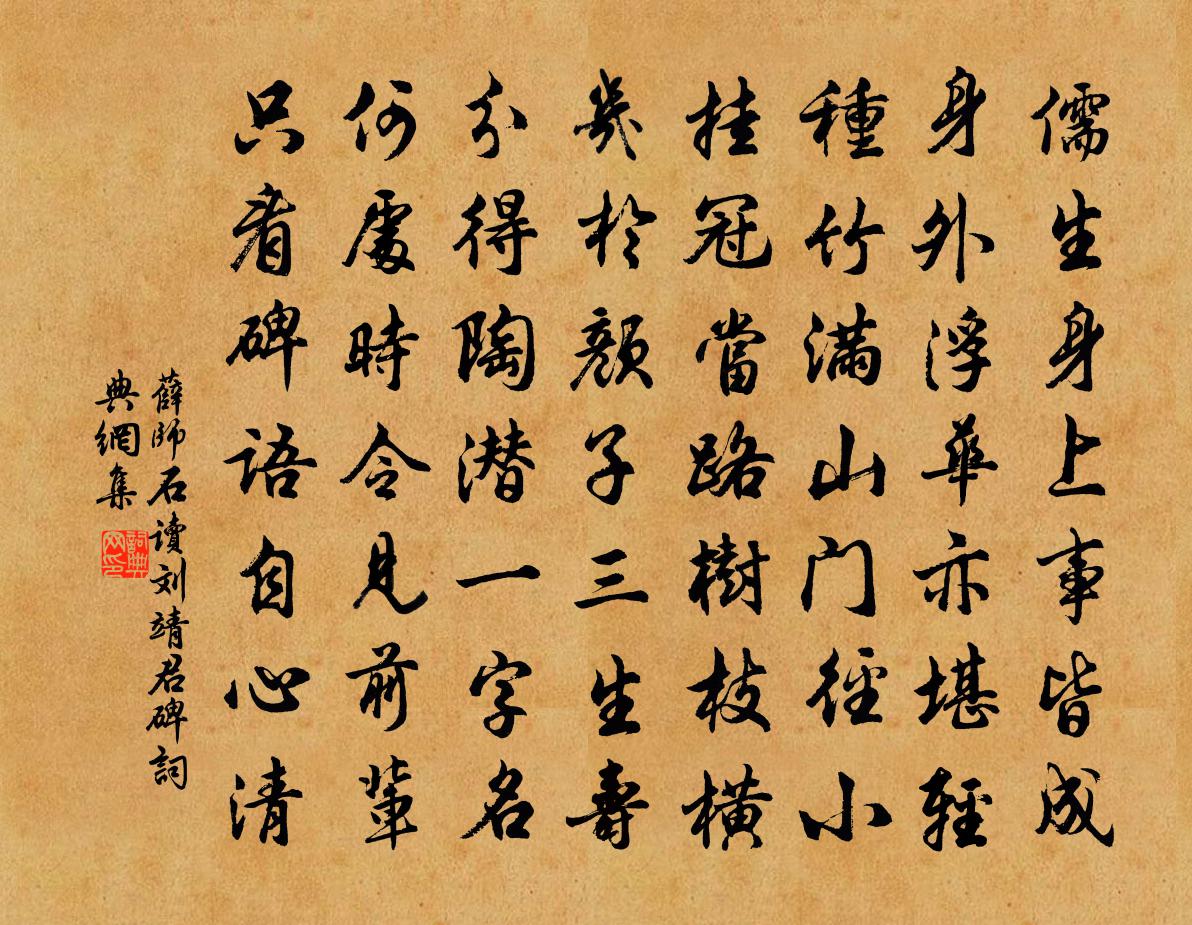 儒生身上事皆成
身外浮華亦堪輕
種竹滿山门徑小
挂冠當路樹枝橫
幾於顏子三生壽
分得陶潜一字名
何處時令見前輩
只看碑語自心清
薛師石读刘靖君碑詞
典網集
詞典网印